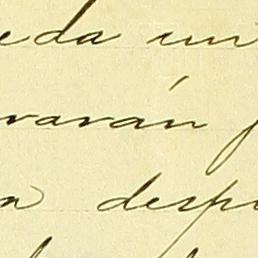 eda un
varán
a desp